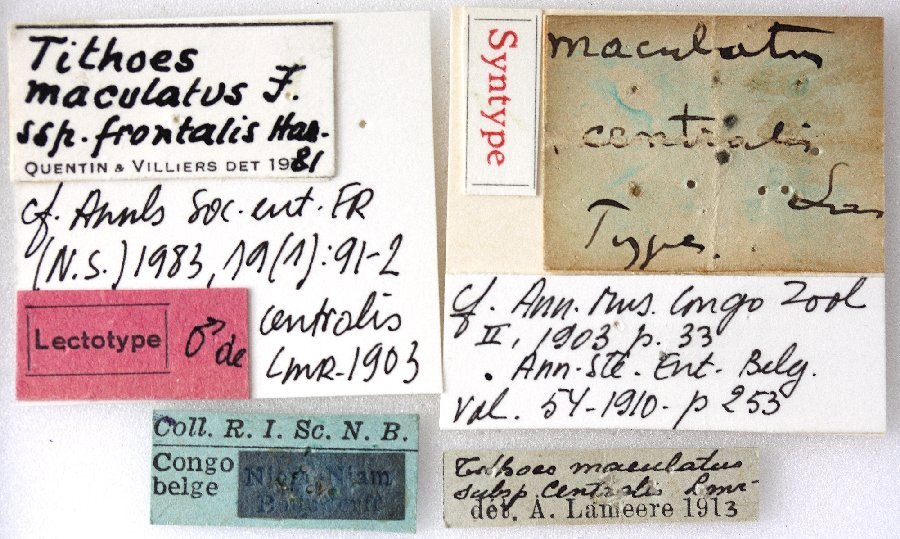 Tithoes
maculatus F.
ssp. frontalis Har.
QUENTIN & VILLIERS DET 1981
cf. Annls Soc. ent. FR
(N.S.) 1983, 19(1): 91-2
Lectotype ♂ de
centralis
LMR. 1903
Syntype
maculatus
centralis
Type
cf. Ann. Mus. Congo Zool
II, 1903 p. 33
. Ann. Sté. Ent. Belg.
Vol. 54-1910- p 253
Coll. R. I. Sc. N. B.
Congo
belge
Niam
Tithoes maculatus
subsp centralis Lmr.
det. A. Lameere 1913